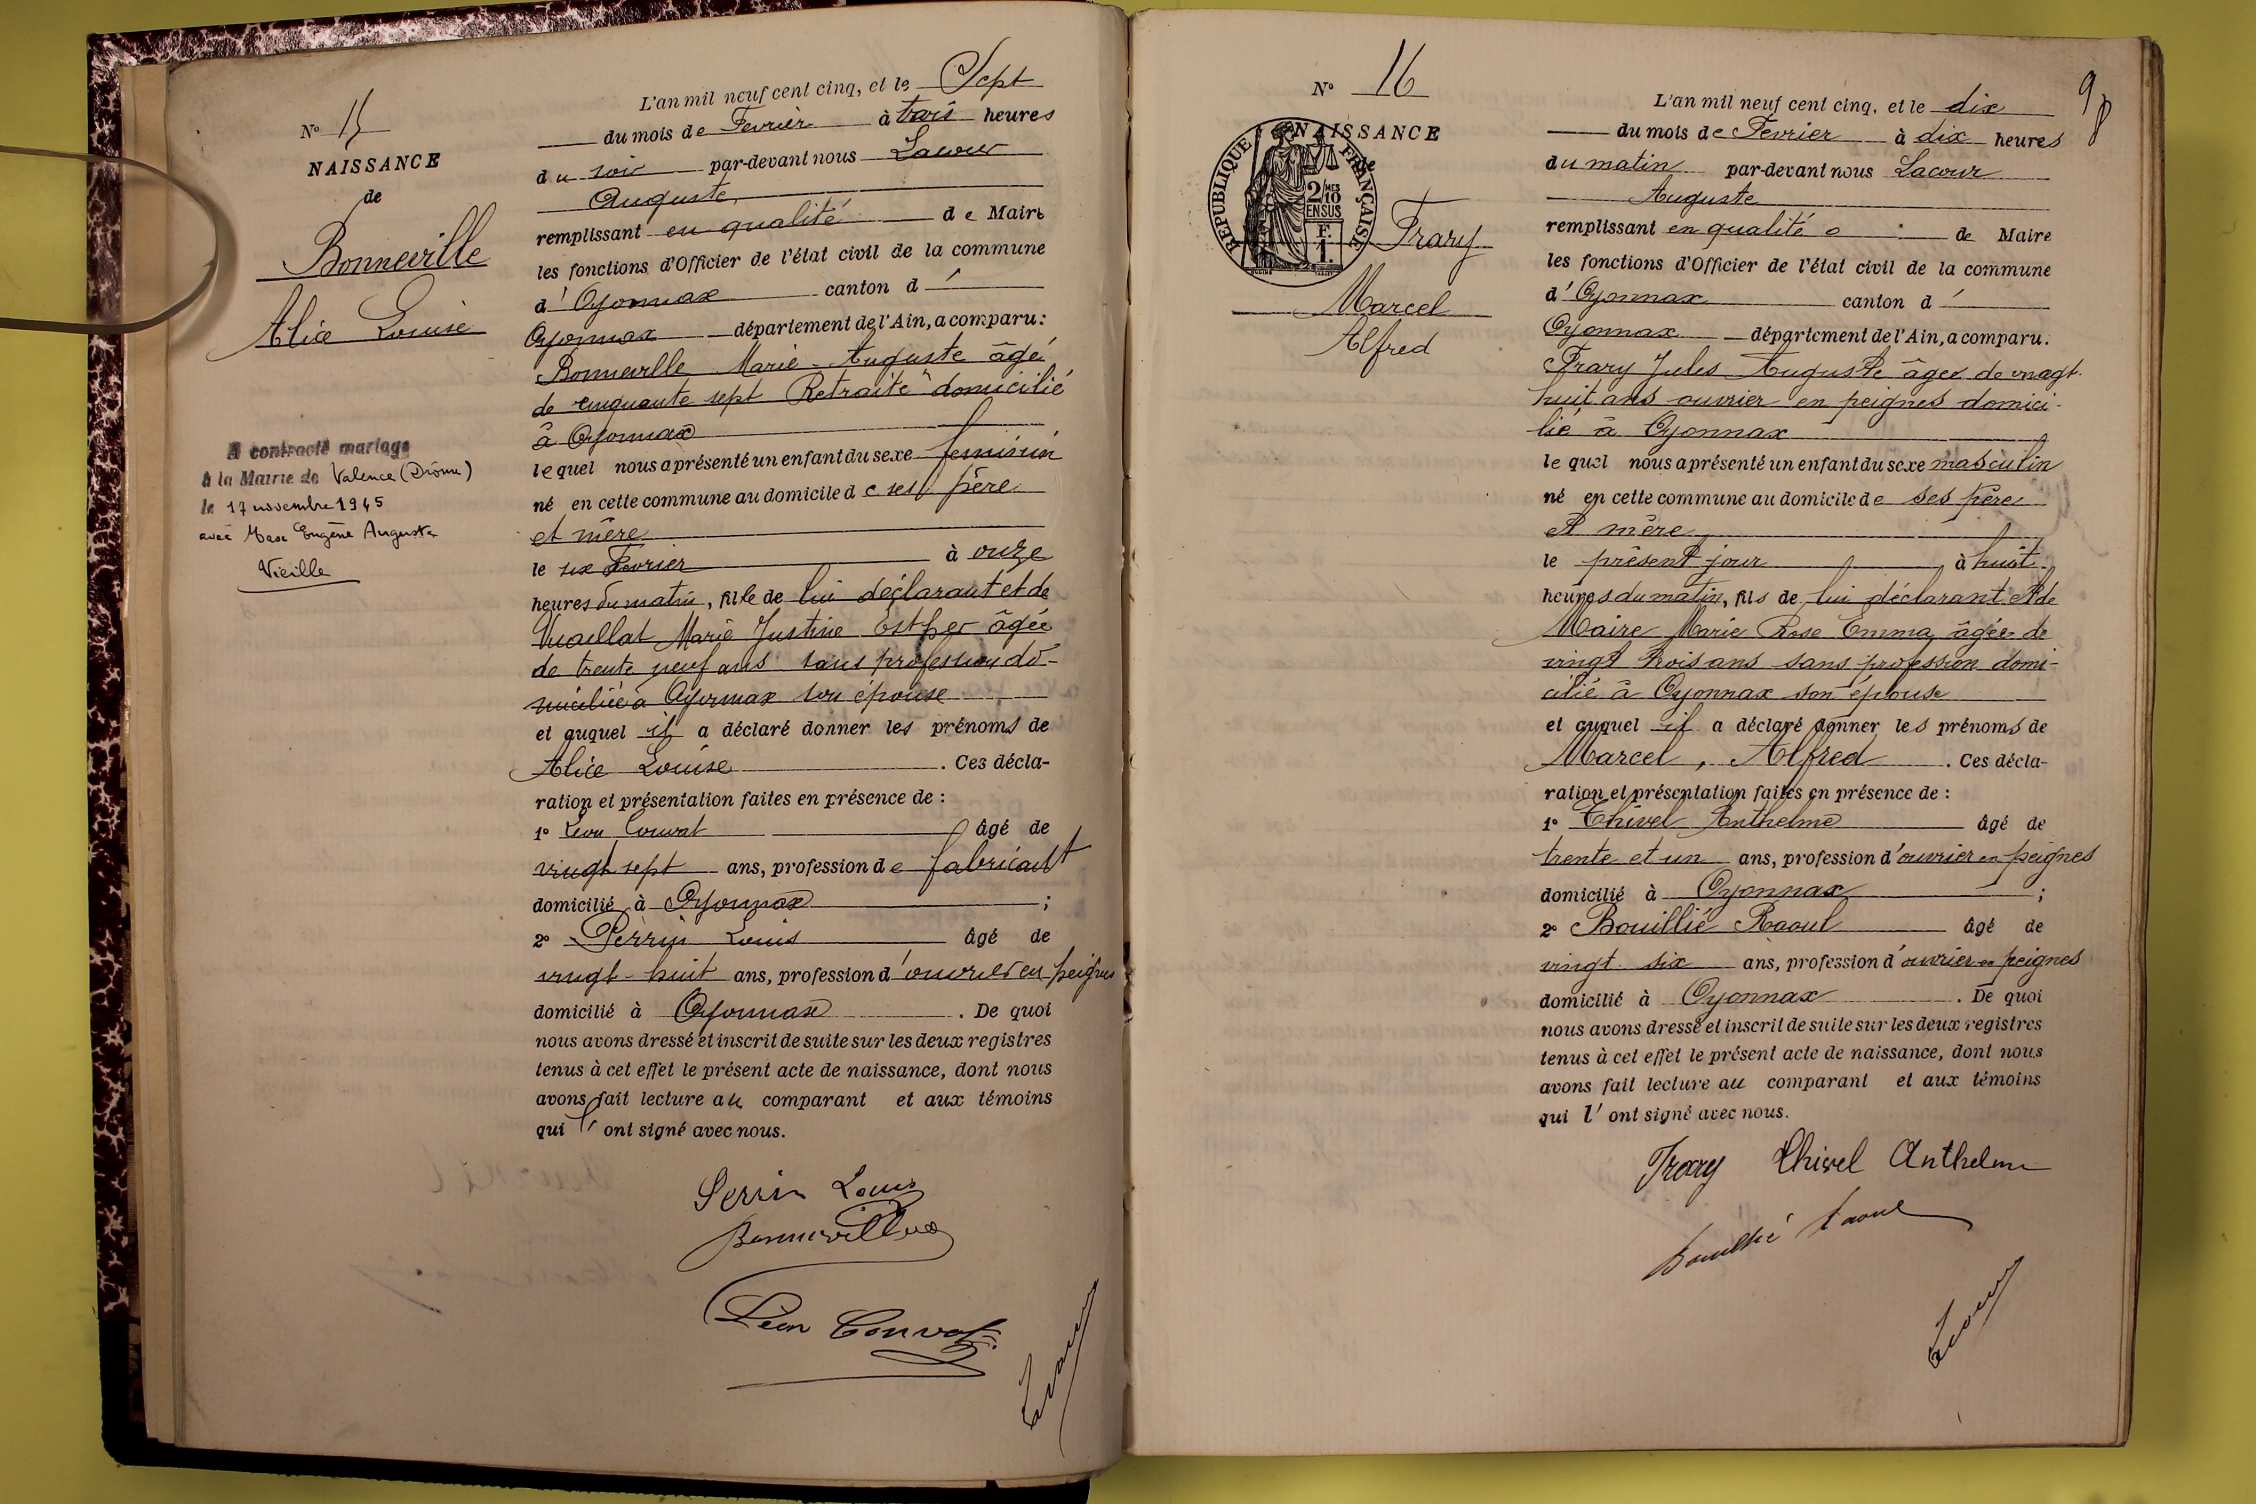 N° 15
NAISSANCE
de
Bonneville
Alice Louise
A contracté mariage
à la Mairie de Valence (Drôme)
le 17 novembre 1945
avec Eugène Auguste
Vieille
L'an mil neuf cent cinq, et le Sept
du mois de Fevrier à trois heures
du soir par-devant nous Lacour
Auguste
remplissant en qualité de Maire
les fonctions d'Officier de l'état civil de la commune
d'Oyonnax canton d'
Oyonnax département de l'Ain, a comparu:
Bonneville Marie Auguste âgé
de cinquante sept Retraité domicilié
à Oyonnax
lequel nous a présenté un enfant du sexe feminin
né en cette commune au domicile de ses père
et mère
le six Fevrier à onze
heures du matin, fille de lui déclarant et de
Vuaillat Marie Justine Esther âgée
de trente neuf ans sans profession do-
miciliée à Oyonnax son épouse
et auquel il a déclaré donner les prénoms de
Alice Louise . Ces décla-
ration et présentation faites en présence de :
1° Léon Convat âgé de
vingt sept ans, profession de fabricant
domicilié à Oyonnax ;
2° Perrin Louis âgé de
vingt-huit ans, profession d'ouvrier en peignes
domicilié à Oyonnax . De quoi
nous avons dressé et inscrit de suite sur les deux registres
tenus à cet effet le présent acte de naissance, dont nous
avons fait lecture au comparant et aux témoins
qui l'ont signé avec nous.
Perrin Louis
Bonneville
Léon Convat
Lacour
98
N° 16
NAISSANCE
de
REPUBLIQUE FRANÇAISE
2/10 MES
EN SUS
F.
1.
Frary
Marcel
Alfred
L'an mil neuf cent cinq, et le dix
du mois de Fevrier à dix heures
du matin par-devant nous Lacour
Auguste
remplissant en qualité de Maire
les fonctions d'Officier de l'état civil de la commune
d'Oyonnax canton d'
Oyonnax département de l'Ain, a comparu.
Frary Jules Auguste âgé de vingt
huit ans ouvrier en peignes domici-
lié à Oyonnax
lequel nous a présenté un enfant du sexe masculin
né en cette commune au domicile de ses père
et mère
le présent jour à huit
heures du matin, fils de lui déclarant et de
Maire Marie Rose Emma âgée de
vingt trois ans sans profession domi-
cilié à Oyonnax son épouse
et auquel il a déclaré donner les prénoms de
Marcel, Alfred . Ces décla-
ration et présentation faites en présence de :
1° Thivel Anthelme âgé de
trente et un ans, profession d'ouvrier en peignes
domicilié à Oyonnax ;
2° Bouillié Raoul âgé de
vingt six ans, profession d'ouvrier en peignes
domicilié à Oyonnax . De quoi
nous avons dressé et inscrit de suite sur les deux registres
tenus à cet effet le présent acte de naissance, dont nous
avons fait lecture au comparant et aux témoins
qui l'ont signé avec nous.
Frary Thivel Anthelme
Bouillié Raoul
Lacour